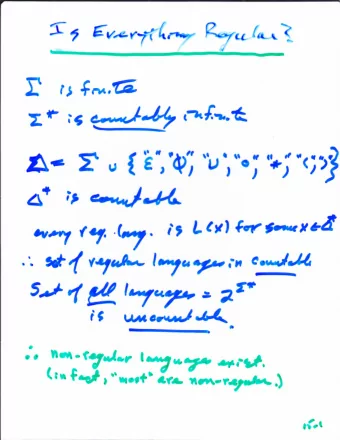 Is Everything Regular?
Σ is finite
Σ* is countably infinite
Δ = Σ ∪ {"ε", "Φ", "∪", "∘", "*", "(", ")"}
Δ* is countable
every reg. lang. is L(x) for some x ∈ Δ*
∴ set of regular languages is countable
Set of all languages = 2^Σ*
is uncountable.
∴ non-regular languages exist.
(in fact, "most" are non-regular.)